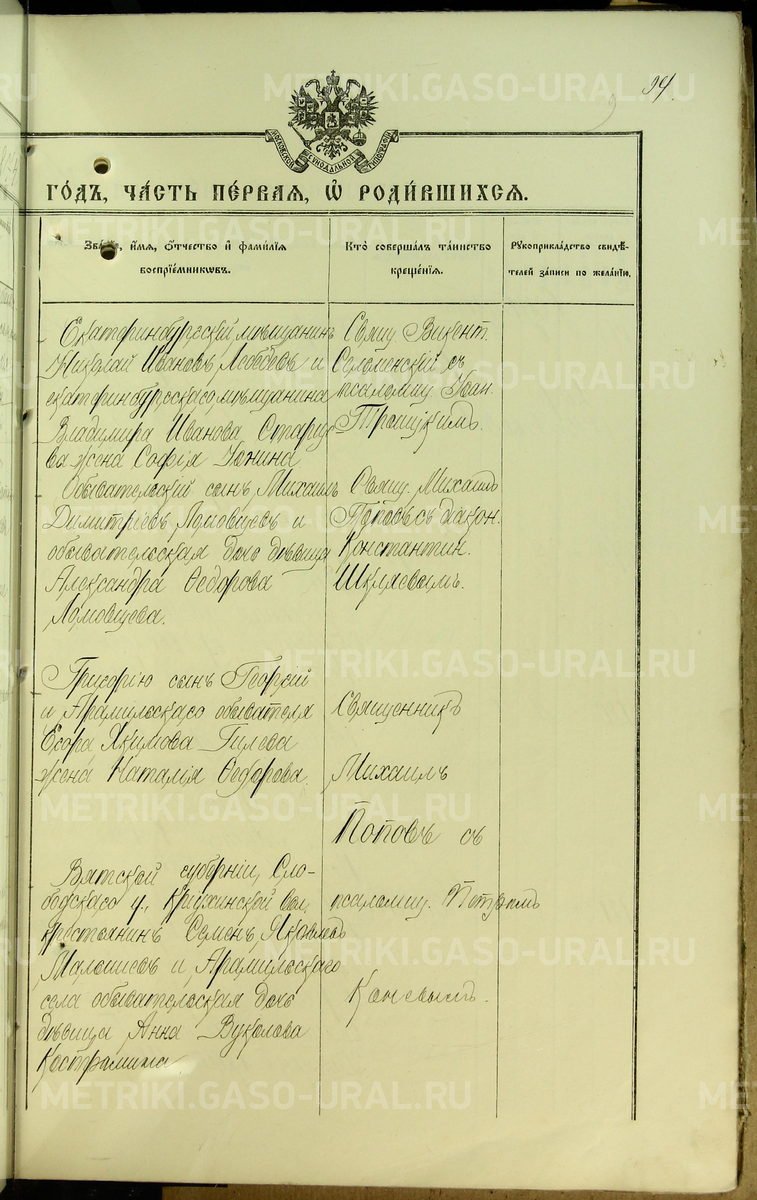 94.
МОСКОВСКОЙ СѴНОДАЛЬНОЙ ТИПОГРАФІИ
ГО́ДЪ, ЧА́СТЬ ПЕ́РВАЯ, Ѡ҆ РОДИ́ВШИХСЯ.
Зва́ніе, и҆́мя, ѻ҆́тчество и҆ фами́лїя
воспрїе́мникѡвъ.
Кто̀ соверша́лъ та́инство
креще́нїя.
Рꙋкоприкла́дство свидѣ́-
телей за́писи по жела́нїю.
Екатеринбургскій мѣщанинъ
Николай Ивановъ Лебедевъ и
екатеринбургскаго мѣщанина
Владимира Иванова Старц
ва жена Софія
Свящ. Викент.
Селеменскій съ
псаломщ. Іоан.
Троицкимъ.
Обывательскій сынъ Михаилъ
Димитріевъ Ломовцевъ и
обывательская дочь дѣвица
Александра Ѳедорова
Ломовцева.
Свящ. Михаилъ
Поповъ съ діакон.
Константин.
Шиляевымъ.
сынъ Георгій
и Арамильскаго обывателя
Егора Якимова Гилева
жена Наталія Ѳедорова.
Священникъ
Михаилъ
Поповъ съ
псаломщ. Петромъ
Коневымъ.
Вятской губерніи, Сло-
бодскаго у., вол.
крестьянинъ Семенъ Яковлевъ
Малышевъ и Арамильскаго
села обывательская дочь
дѣвица Анна Вуколова
Костромина
METRIKI.GASO-URAL.RU